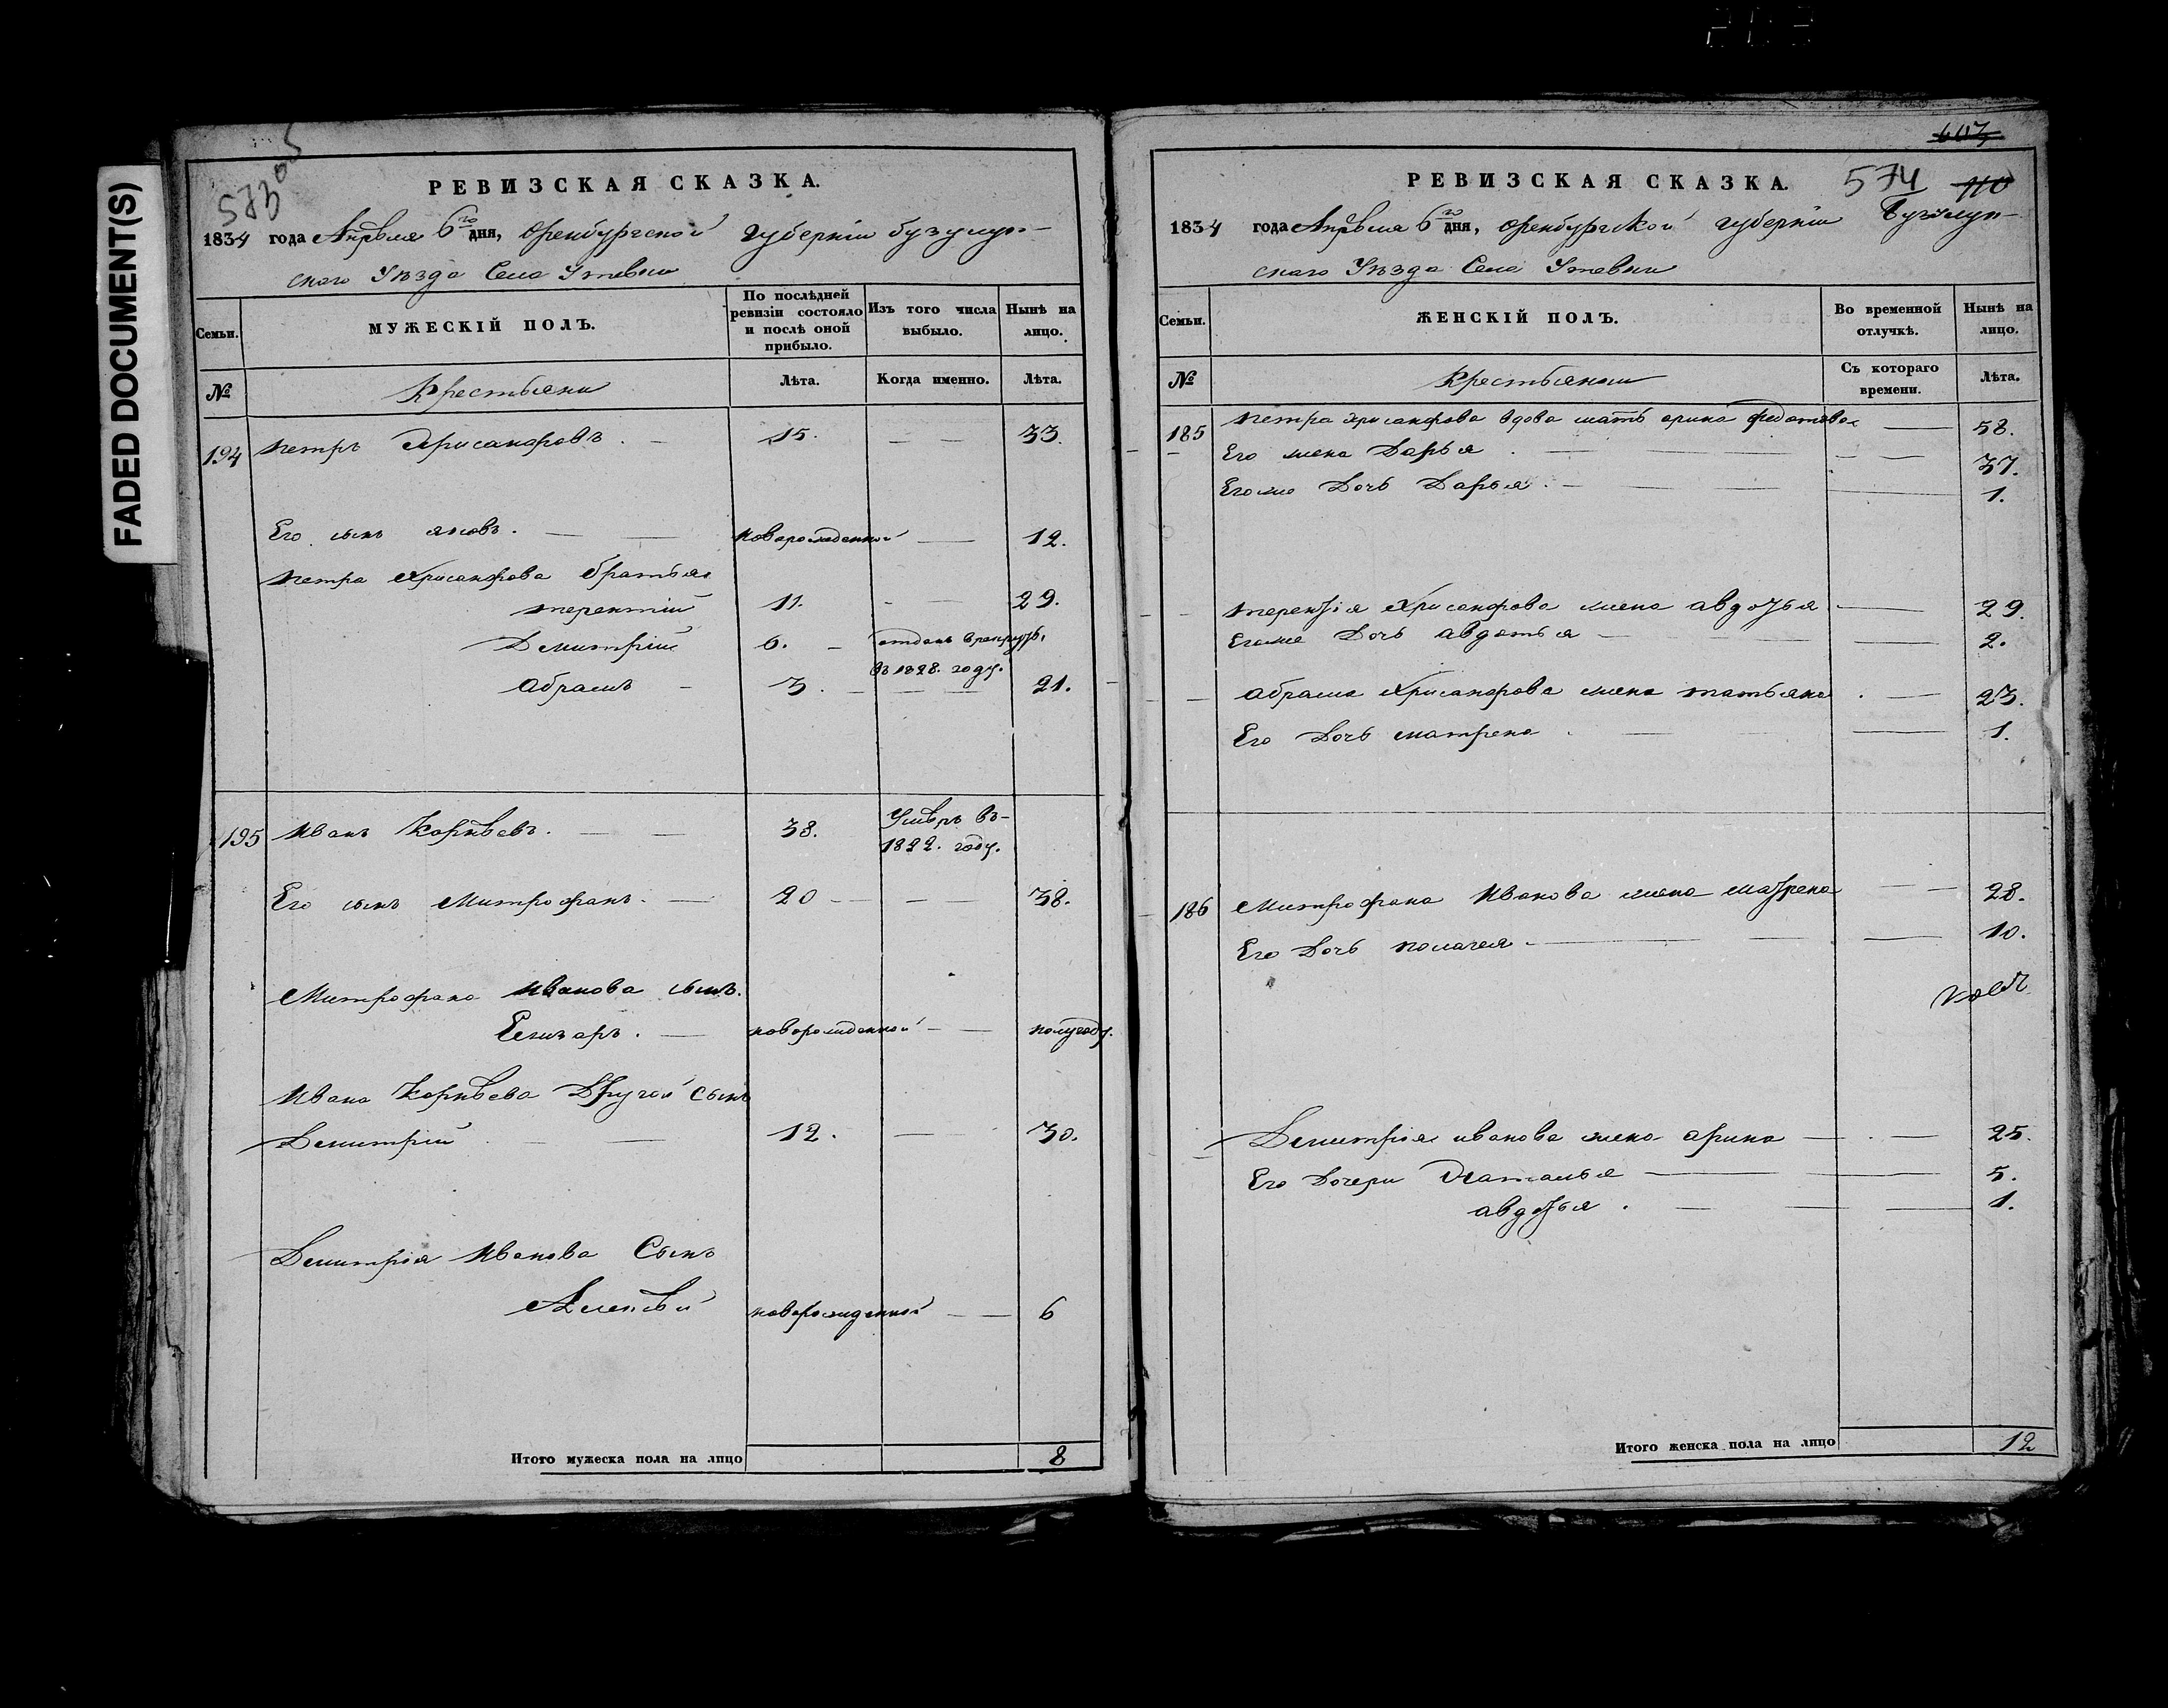 FADED DOCUMENT(S)
573
РЕВИЗСКАЯ СКАЗКА.
1834 года Апрѣля 6го дня, Оренбургской губерніи бузулук-
скаго Уѣзда Села Утевки
Семьи.
МУЖЕСКІЙ ПОЛЪ.
По послѣдней ревизіи состояло и послѣ оной прибыло.
Изъ того числа выбыло.
Нынѣ на лицо.
№
Крестьяни
Лѣта.
Когда именно.
Лѣта.
194 петръ Хрисанфовъ. 15. 33.
Его сынъ яковъ. новорожденной 12.
петра Хрисанфова братья
терентій 11. 29.
Дмитрій 6. отданъ в рекруты
въ 1828. году.
абрамъ 3. 21.
195 иванъ Корнѣевъ. 38. Умѣръ въ-
1822. году.
Его сынъ Митрофанъ. 20 38.
Митрофана иванова сынъ.
Елизаръ. новорожденной полугоду.
ивана Корнѣева Другой сынъ
Дмитрій 12. 30.
Дмитрія иванова Сынъ
Алексѣй новорожденной 6
Итого мужеска пола на лицо 8
607
574 110
РЕВИЗСКАЯ СКАЗКА.
1834 года Апрѣля 6го дня, Оренбургской губерніи Бузулук-
скаго Уѣзда Села Утевки
Семьи.
ЖЕНСКІЙ ПОЛЪ.
Во временной отлучкѣ.
Нынѣ на лицо.
№
Крестьянки
Съ котораго времени.
Лѣта.
185 петра хрисанфова вдова мать арина федотова 58.
Его жена Дарья. 37.
Егоже Дочь Дарья. 1.
терентія Хрисанфова жена авдотья 29.
Егоже Дочь авдотья 2.
абрама Хрисанфова жена татьяна 23.
Его Дочь матрена 1.
186 Митрофана Иванова жена матрена 28.
Его Дочь полагея 10.
Дмитрія иванова жена арина 25.
Его Дочери Наталья 5.
авдотья. 1.
Итого женска пола на лицо 12